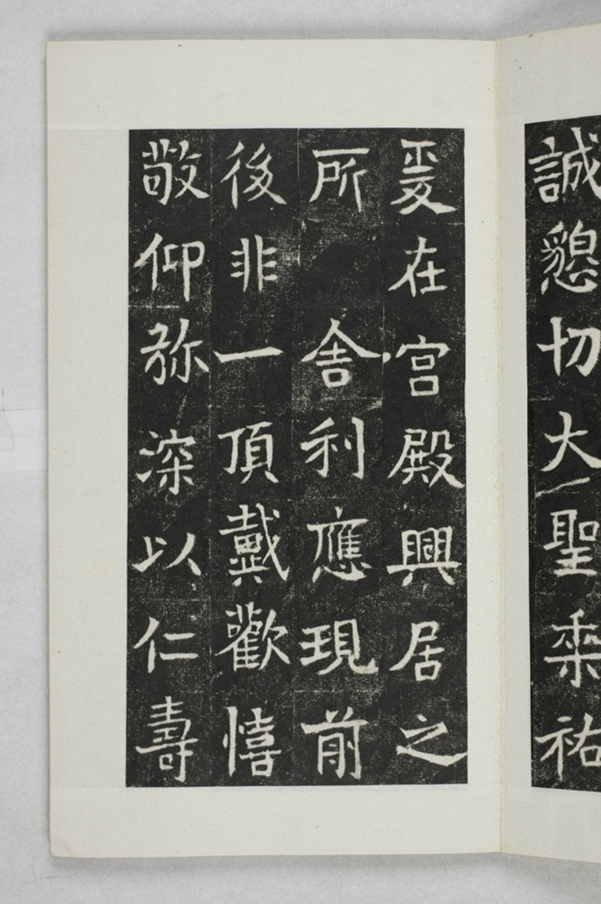 誠懇切大聖垂祐
爰在宮殿興居之
所　舍利應現前
後非一頂戴歡憘
敬仰弥深以仁壽